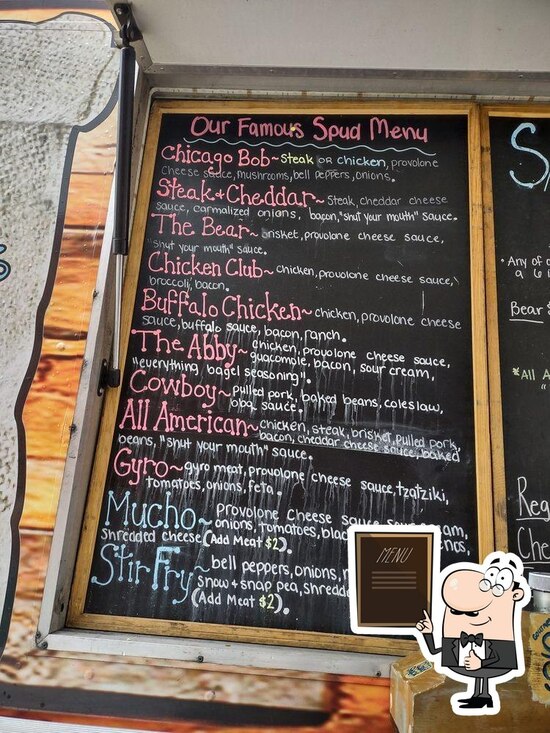 Our Famous Spud Menu
Chicago Bob~ steak or chicken, provolone
cheese sauce, mushrooms, bell peppers, onions.
Steak+Cheddar~ steak, cheddar cheese
sauce, carmalized onions, bacon, "shut your mouth" sauce.
The Bear~ brisket, provolone cheese sauce,
"shut your mouth" sauce.
Chicken Club~ chicken, provolone cheese sauce,
broccoli, bacon.
Buffalo Chicken~ chicken, provolone cheese
sauce, buffalo sauce, bacon, ranch.
The Abby~ chicken, provolone cheese sauce,
guacomple, bacon, sour cream,
"everything bagel seasoning".
Cowboy~ pulled pork, baked beans, coleslaw,
bbq sauce.
All American~ chicken, steak, brisket, pulled pork,
bacon, cheddar cheese sauce, baked
beans, "shut your mouth" sauce.
Gyro~ gyro meat, provolone cheese sauce, tzatziki,
tomatoes, onions, feta.
Mucho~ Provolone Cheese sauce,
onions, tomatoes,
shredded cheese (Add Meat $2).
Stir Fry~ bell peppers, onions,
snow + snap pea,
(Add Meat $2).
Any of
Bear $
*All A
Che
MENU